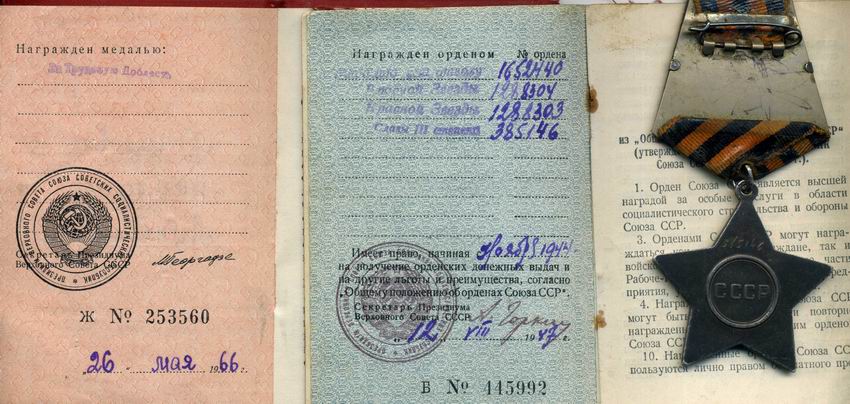 Награжден медалью:
За Трудовую Доблесть
ВЕРХОВНОГО СОВЕТА СОЮЗА СОВЕТСКИХ СОЦИАЛИСТИЧЕСКИХ
Секретарь Президиума
Верховного Совета СССР
МГеоргадзе
Ж № 253560
„26“ мая 1966 г.
Награжден орденом № ордена
1652440
Красной Звезды 1288304
Красной Звезды 1288303
Славы III степени 385146
Имеет право, начиная с ноября 1944
на получение орденских денежных выдач и
на другие льготы и преимущества, согласно
„Общему положению об орденах Союза ССР“.
Секретарь Президиума
Верховного Совета СССР
А. Горкин
„12“ VIII 1947 г.
Б № 445992
из „Общ
(утверж
Союза
1. Орден Союза является высшей
наградой за особые услуги в области
социалистического строительства и обороны
Союза ССР.
3. Орденами Союза ССР могут награ-
ждаться
войско
Рабоче-
приятия,
4. Награ Союза ССР
могут быть повторно
награжден им орденом
Союза ССР.
10. Наг орденами Союза ССР
пользуются лично правом бесплатного пр
385146
СССР